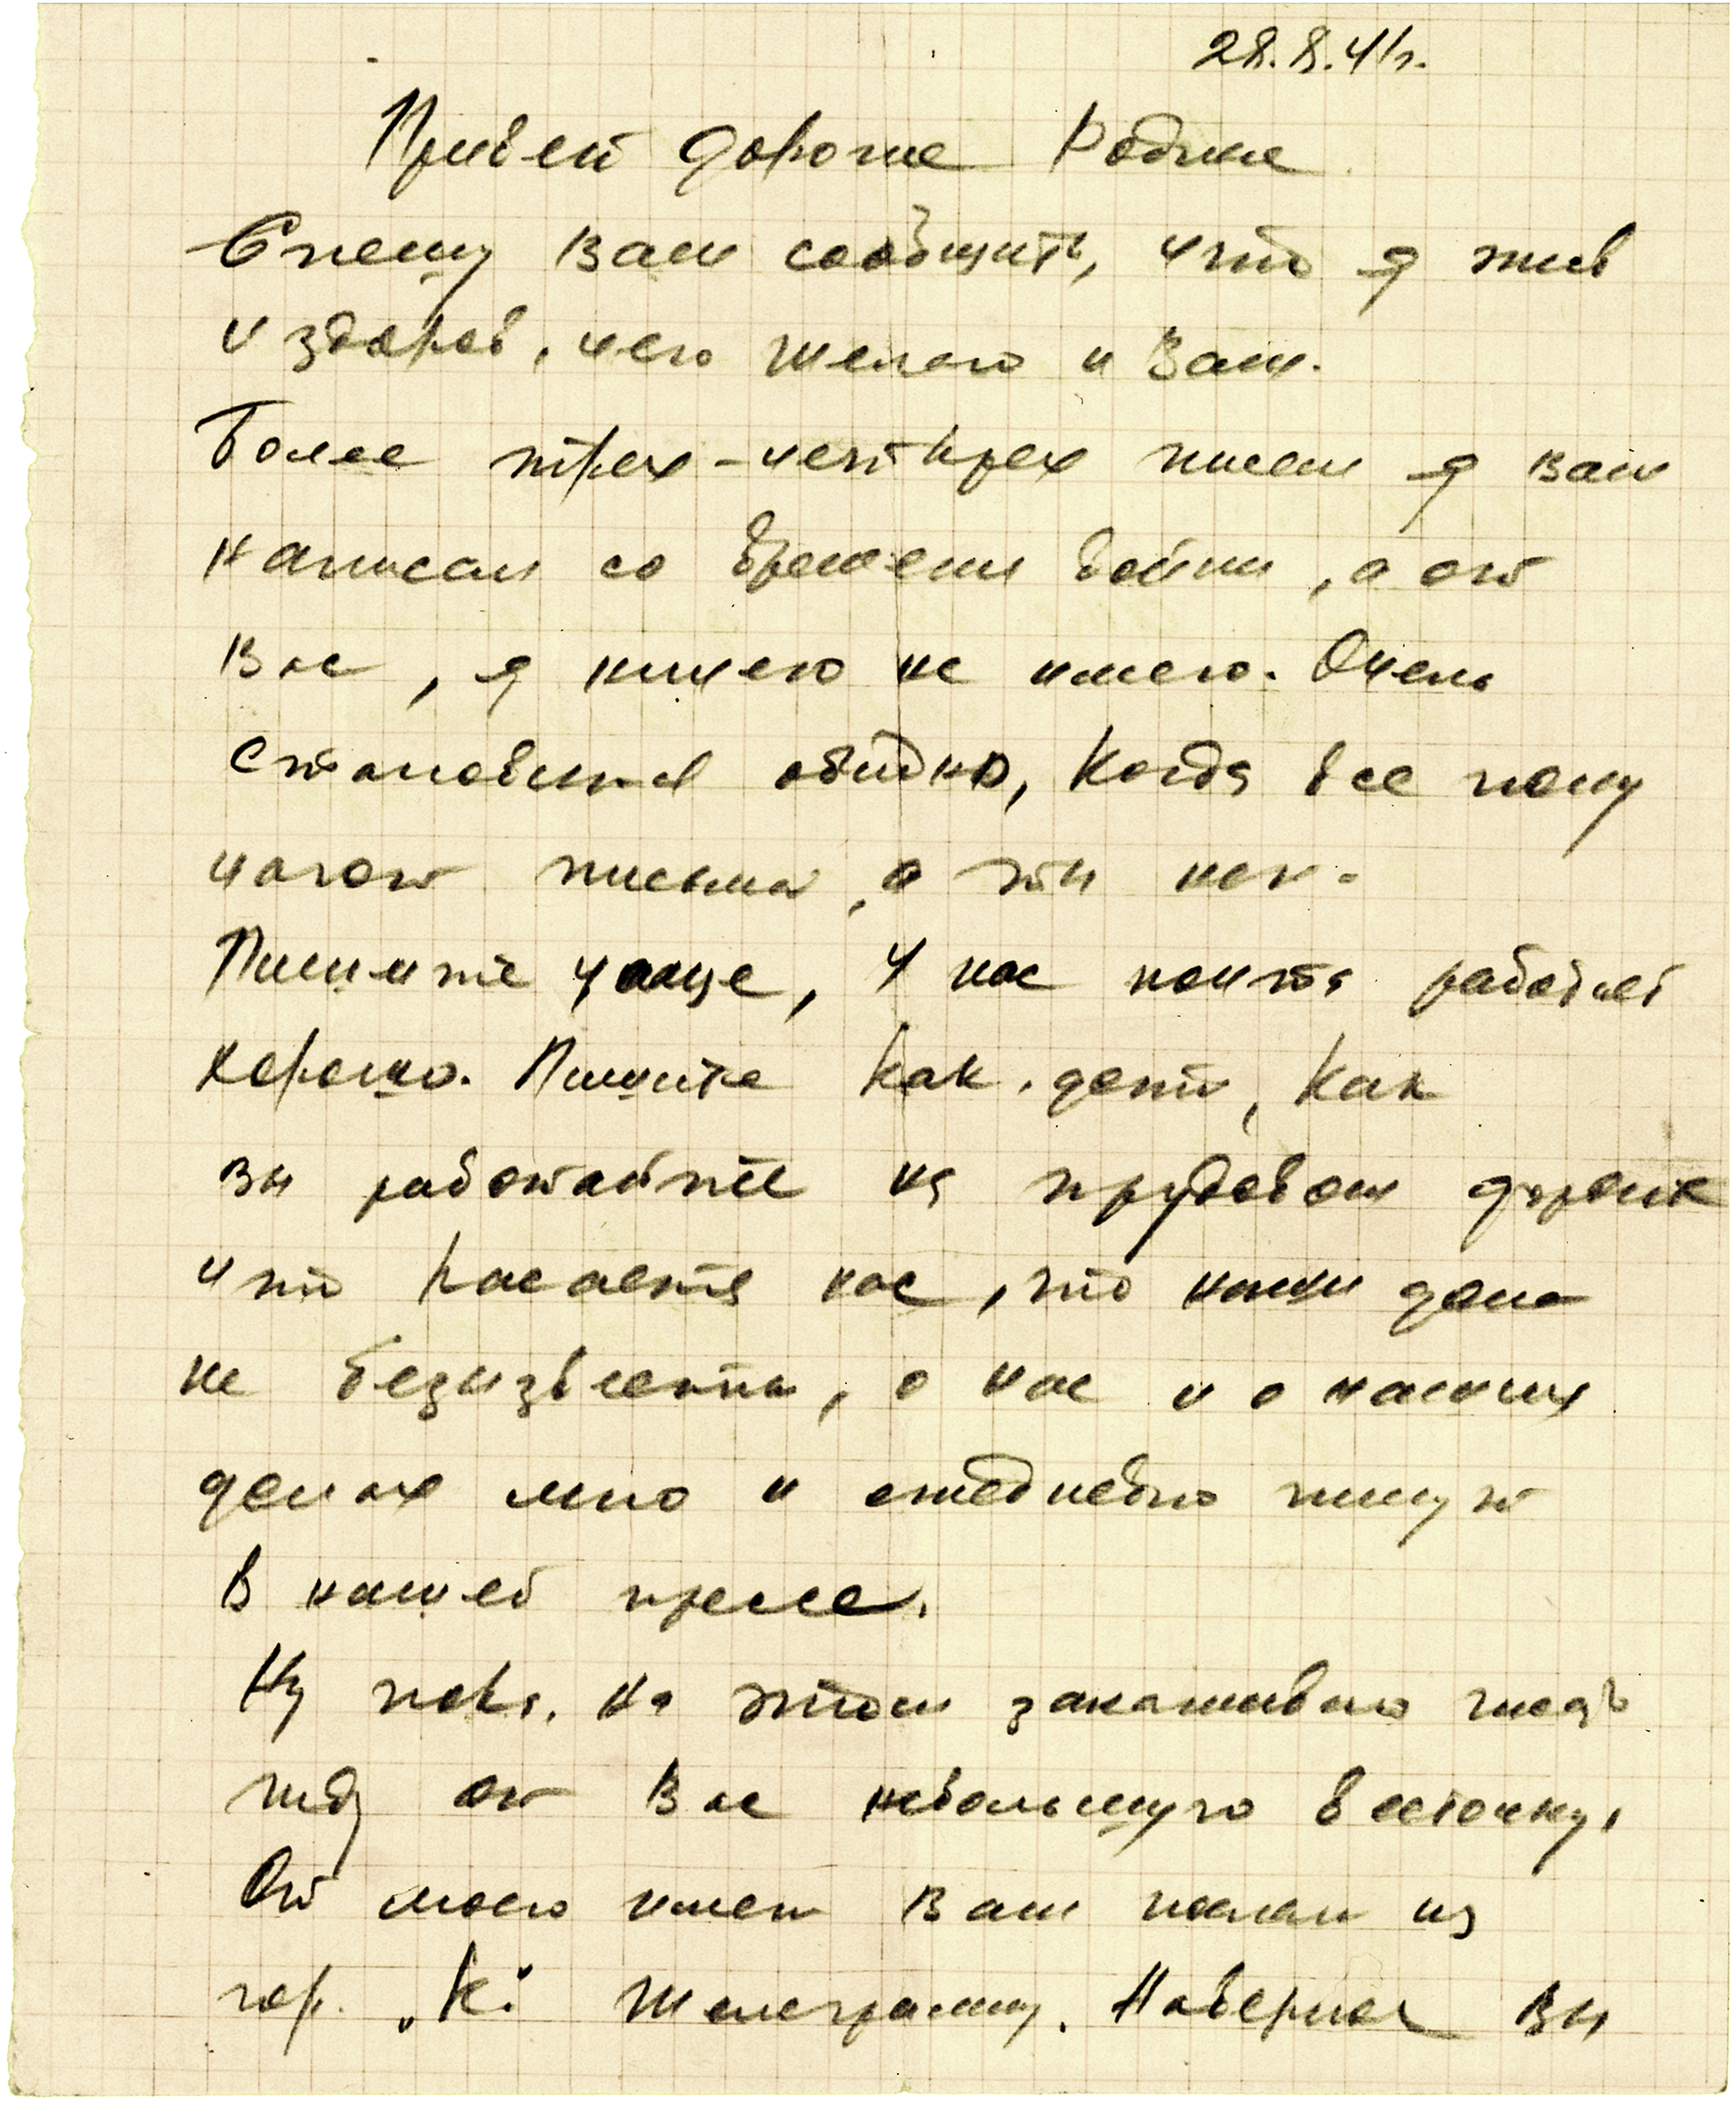 28.8.41г.
Привет дорогие Родные
Спешу Вам сообщить, что я жив
и здоров, чего желаю и Вам.
Более трех-четырех писем я вам
написал со времени войны, а от
Вас, я ничего не имею. Очень
становится обидно, когда все полу
чают письма, а ты нет.
Пишите чаще, у нас почта работает
хорошо. Пишите как дети, как
вы работайте на трудовом фронте
что касается нас, то наши дела
не безизвестны, о нас и о наших
делах много и ежедневно пишут
в нашей прессе.
Ну пока. На этом заканчиваю
жду от Вас небольшую весточку.
От моего имени Вам послали из
гор. „К." телеграмму. Наверное Вы